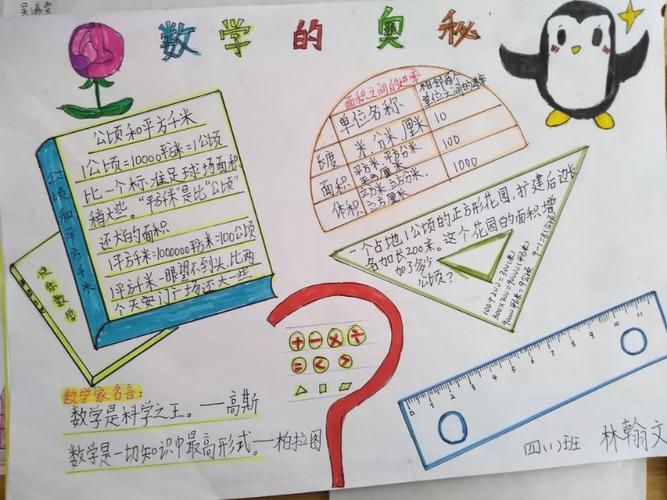 数学的奥秘
公顷和平方千米
1公顷=10000平方米=1公顷
比一个标准足球场面积
稍大些。“平方米”是比“公顷”
还大的面积.
1平方千米=1000000平方米=100公顷
1平方千米一眼望不到头,比两
个天安门广场还大一些
公顷和平方千米
面积之间的进率
单位名称 相邻两个单位之间的进率
长度 米 分米 厘米 10
面积 平方米 平方分米 平方厘米 100
体积 立方米 立方分米 立方厘米 1000
一个占地1公顷的正方形花园,扩建后边长
各加长200米。这个花园的面积增
加了多少
公顷?
100+200=300(米)
300×300=90000(平方米)
90000平方米=9公顷
9-1=8(公顷)
+ − × ÷
= < >
数学家名言:
数学是科学之王。——高斯
数学是一切知识中最高形式.——柏拉图
0 1 2 3 4 5 6 7 8 9 10 11
四(1)班 林翰文